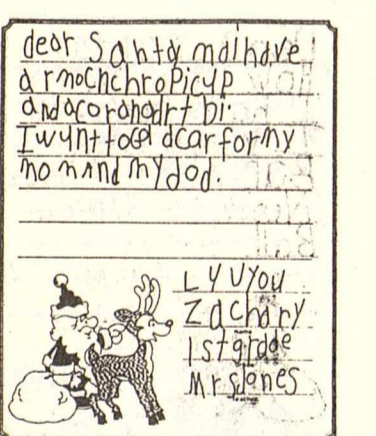 dear Santa mdIhave
a rmocnchroPicup
andacorandart bi.
I wunt to cal dcar for my
momand my dad.
L y U you
Zachary
1stgrade
MrsJones